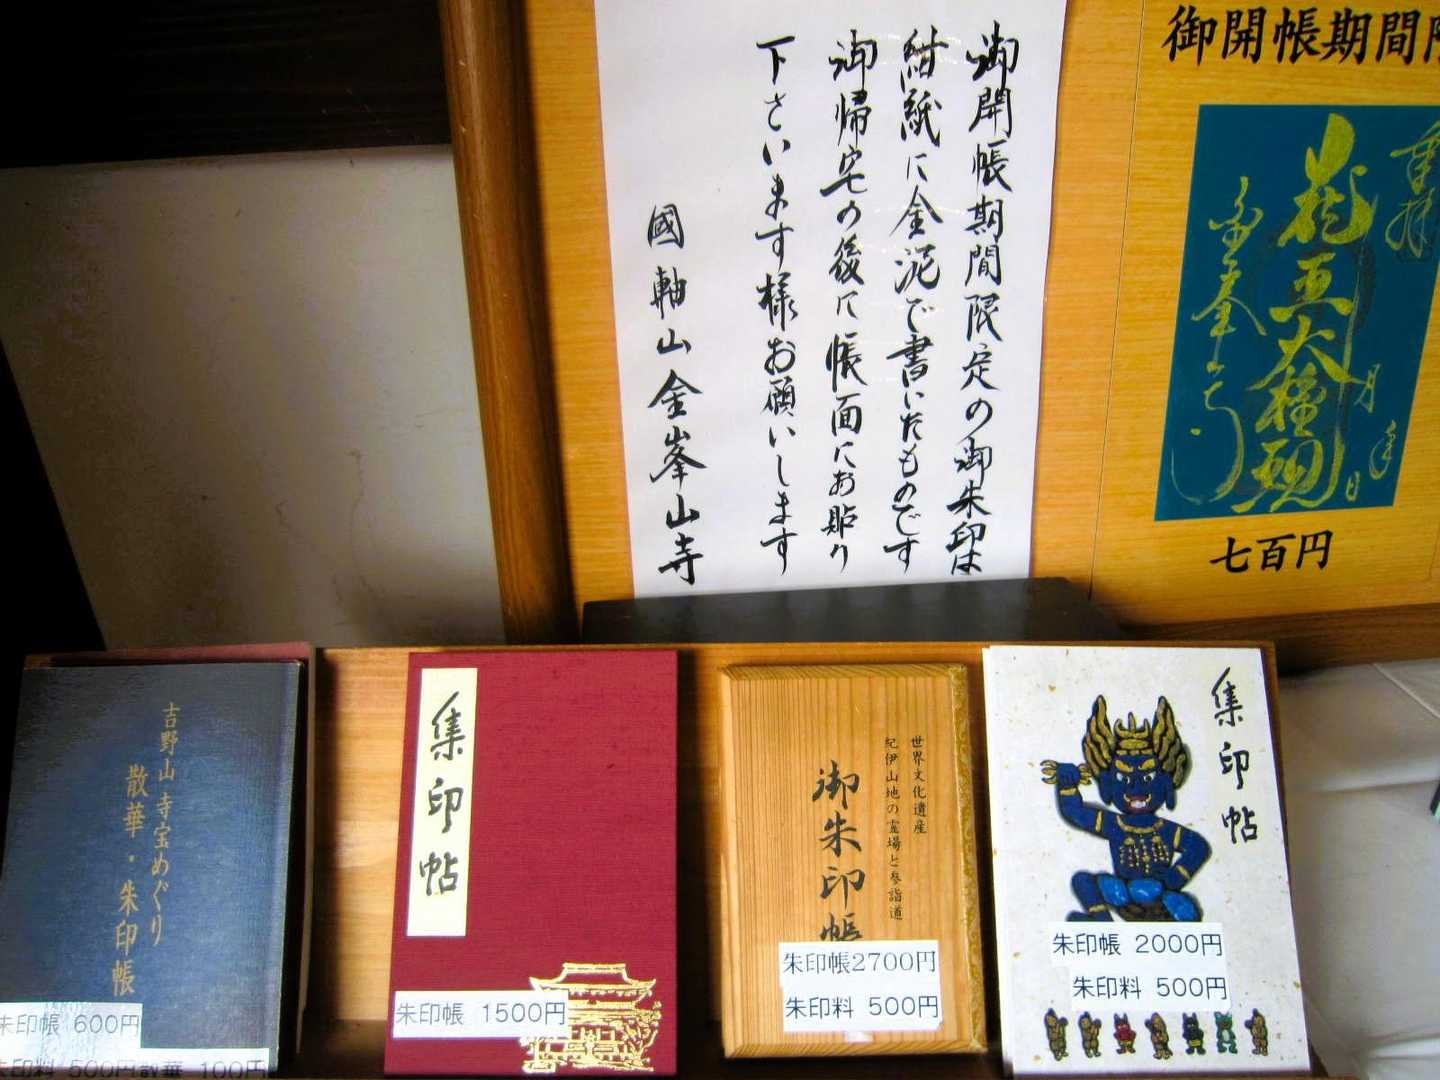 御開帳期間限定の御朱印は
紺紙に金泥で書いたものです
御帰宅の後に帳面にお貼り
下さいます様お願いします
國軸山金峯山寺
御開帳期間
七百円
吉野山 寺宝めぐり
散華・朱印帳
朱印帳 600円
朱印料 500円散華 100円
集印帖
朱印帳 1500円
世界文化遺産
紀伊山地の霊場と参詣道
御朱印帳
朱印帳2700円
朱印料 500円
集印帖
朱印帳 2000円
朱印料 500円